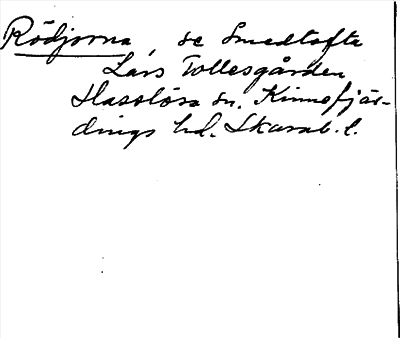 Rödjorna, se Smedtofta
Lars Tollesgården
Hasslösa sn. Kinnefjär-
dings hd. Skarab. l.